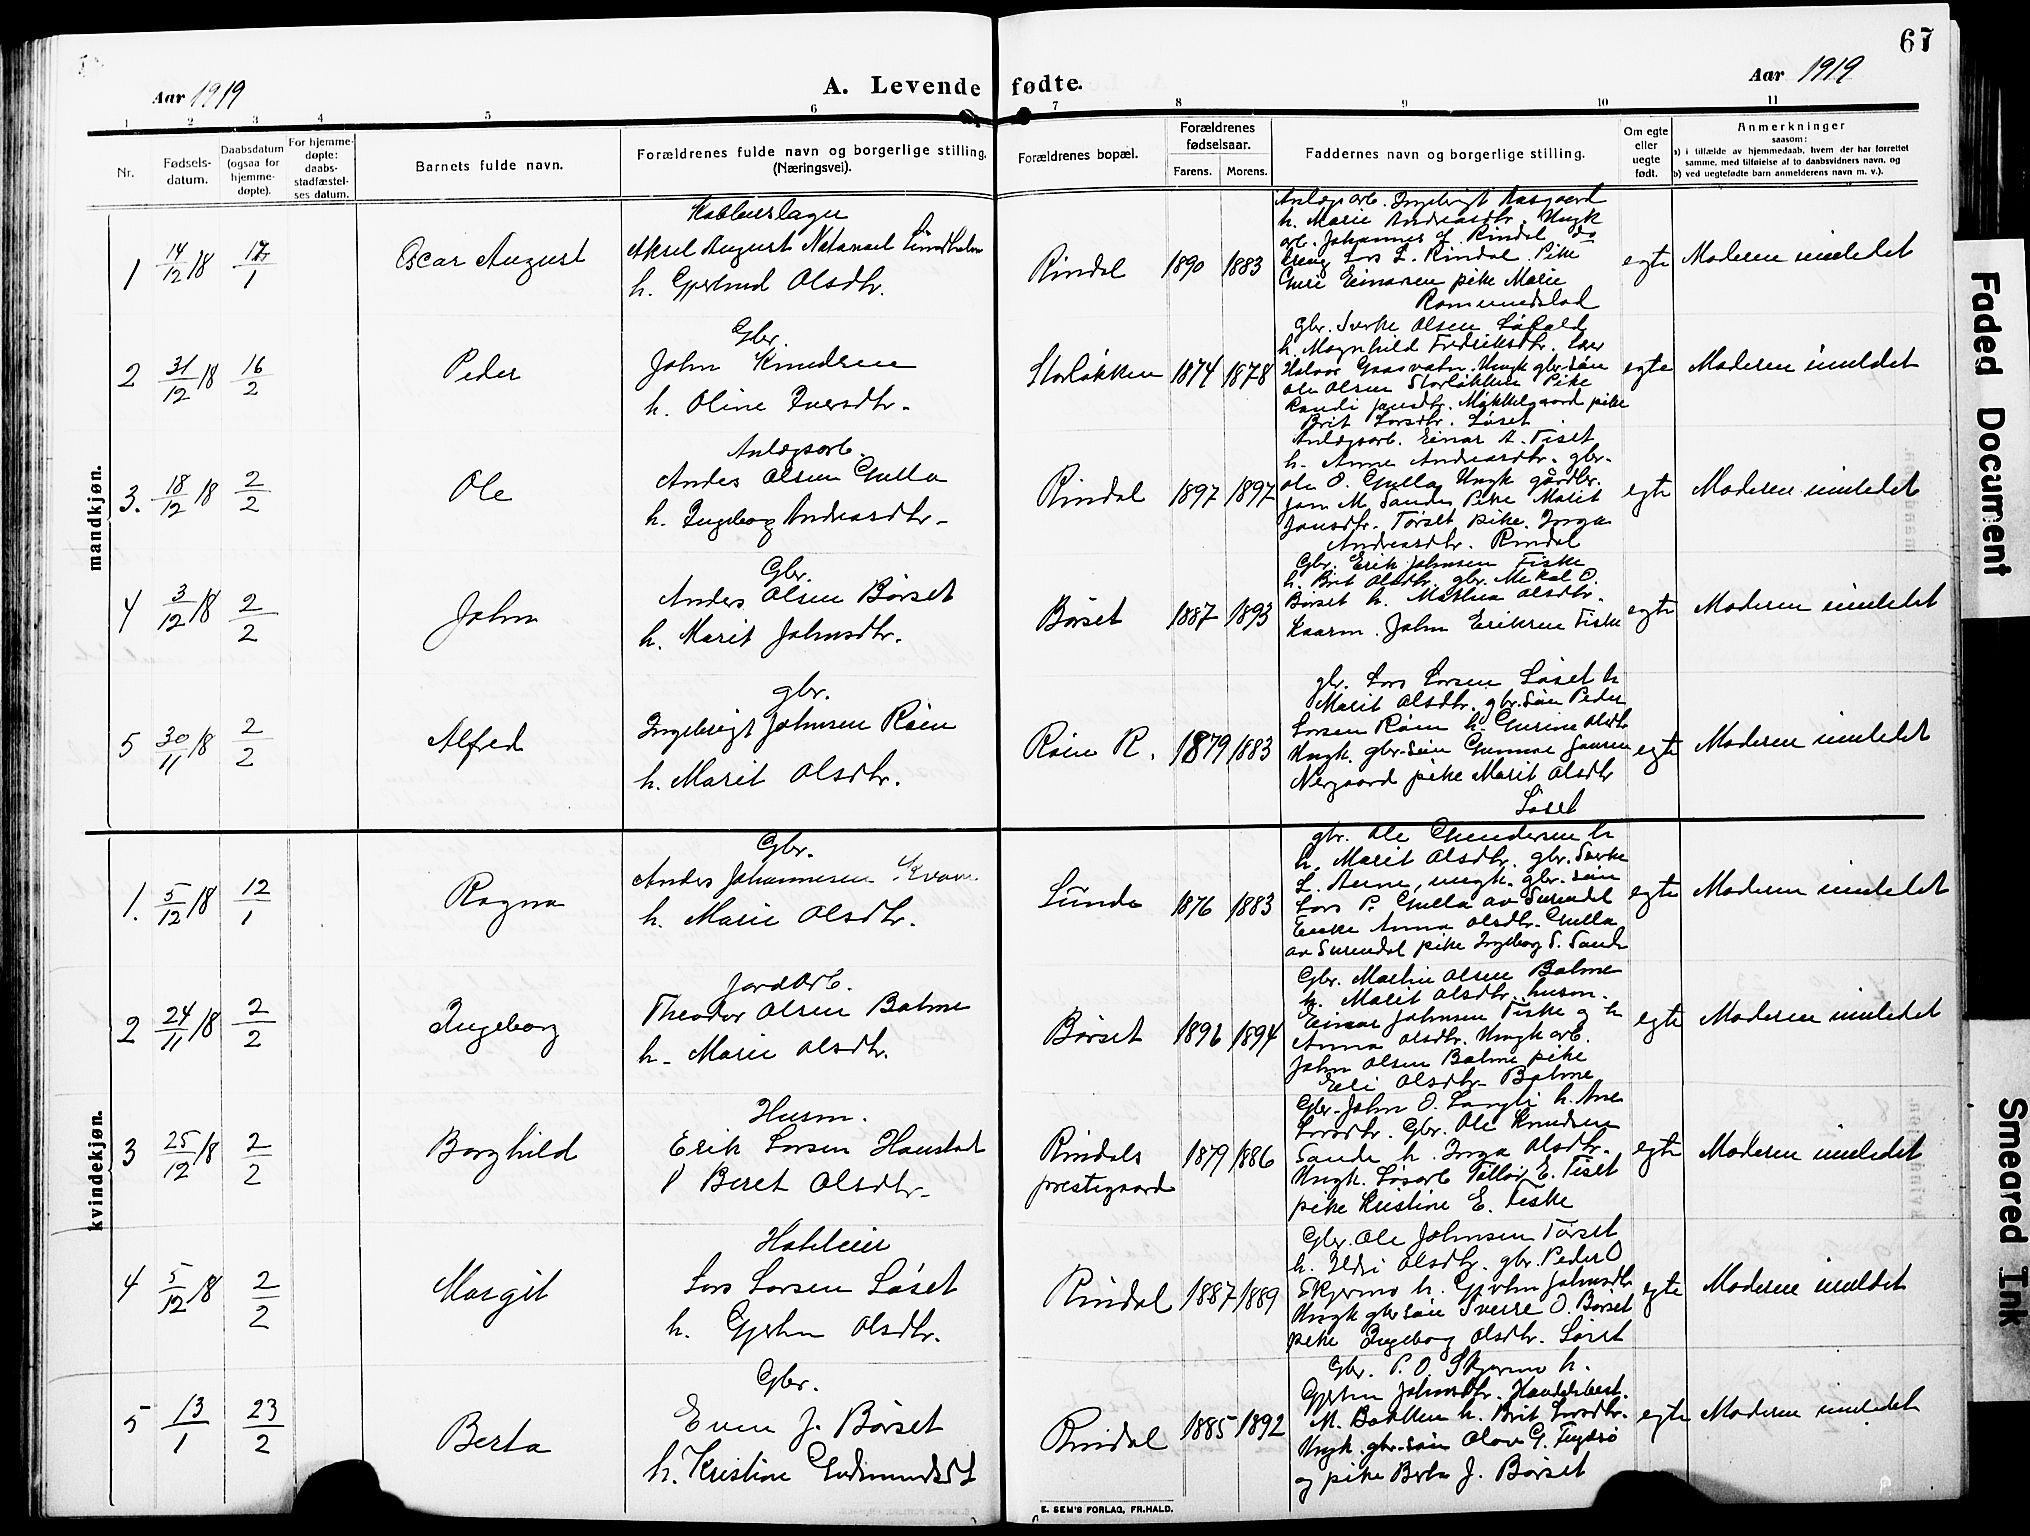 67
Aar 1919
A. Levende fødte.
Aar 1919
1 2 3 4 5 6 7 8 9 10 11
Nr.
Fødsels-
datum.
Daabsdatum
(ogsaa for
hjemme-
døpte).
For hjemme-
døpte:
daabs-
stadfæstel-
ses datum.
Barnets fulde navn.
Forældrenes fulde navn og borgerlige stilling.
(Næringsvei).
Forældrenes bopæl.
Forældrenes
fødselsaar.
Farens. Morens.
Faddernes navn og borgerlige stilling.
Om egte
eller
uegte
født.
Anmerkninger
saasom:
a) i tilfælde av hjemmedaab, hvem der har forrettet
samme, med tilføielse af to daabsvidners navn, og
b) ved uegtefødte barn anmelderens navn m. v.).
mandkjøn.
1 14/12 18 17/1 Oscar August
Aksel August Natanael
h. Gjertrud Olsdtr.
Rindal 1890 1883
Anlægsarb. Ingebrigt Aasgaard
h. Marie Andreasdtr. Ungk
arb. Johannes Rindal
Lars L. Rindal. Pike
Guri Einarsen pike Marie
Romundstad
egte Moderen innledet
2 31/12 18 16/2 Peder
Gbr.
John Knudsen
h. Oline Iversdtr.
Storløkken 1874 1878
gbr. Sverke Olsen Løfald
h. Magnhild Fredriksdtr.
Halvor Gaasvatn. Ungk gbr. søn
Ole Olsen Storløkken Pike
Randi Jonsdtr. Mikkelgaard pike
Brit Larsdtr. Løset
egte Moderen innledet
3. 18/12 18 2/2 Ole
Anlægsarb.
Anders Olsen Gulla
h. Ingeborg Andreasdtr.
Rindal 1897 1897
Anlægsarb. Einar A. Tiset
h. Anne Andreasdtr. gbr.
Ole O. Gulla Ungk gårdbr.
Jon M. Sande Pike Marit
Jonsdtr. Tørset pike. Inga
Andreasdtr. Rindal
egte Moderen innledet
4 3/12 18 2/2 John
Gbr.
Anders Olsen Børset
h. Marit Johnsdtr.
Børset 1887 1893
Gbr. Erik Johnsen Fiske
h. Brit Olsdtr. gbr. Mikal O.
Børset h. Mathea Olsdtr.
John Eriksen Fiske
egte Moderen innledet
5 30/11 18 2/2 Alfred
gbr.
Ingebrigt Johnsen Røen
h. Marit Olsdtr.
Røen R. 1879 1883
gbr. Lars Larsen Løset h
Marit Olsdtr. gbr. Søn Peder
Larsen Røen h. Gurine Olsdtr
Ungk. gbr. søn Gunnar Jonsen
Nergaard pike Marit Olsdtr
Løset
egte Moderen innledet
kvindekjøn.
1. 5/12 18 12/1 Ragna
Gbr.
Anders Johannesen Kvam
h. Marie Olsdtr.
Lunde 1876 1883
gbr. Ole Gundersen h
h. Marit Olsdtr. gbr. Sverke
L. Aune, ungk. gbr. søn
Lars P. Gulla av Surendal
Enke Anna Olsdtr. Gulla
av Surendal pike Ingeborg S. Sande
egte Moderen innledet
2 24/11 18 2/2 Ingeborg
Jordarb.
Theodor Olsen Bolme
h. Marie Olsdtr.
Børset 1896 1894
Gbr. Martin Olsen Bolme
h. Marit Olsdtr. husm.
Einar Johnsen Fiske og h
Anna Olsdtr. Ungk arb.
John Olsen Bolme pike
Eli Olsdtr. Bolme
egte Moderen innledet
3 25/12 18 2/2 Borghild
Husm.
Erik Larsen Haustad
Beret Olsdtr.
Rindals
prestegaard 1879 1886
Gbr. John O. Langli h. Ane
Larsdtr. Gbr. Ole Knudsen
Sande h. Inga Olsdtr.
Ungk. Løsarb Tollev E. Tiset
pike Kristine E. Fiske
egte Moderen innledet
4 5/12 18 2/2 Margit
Hoteleier
Lars Larsen Løset
h. Gjertru Olsdtr.
Rindal 1887 1889
Gbr. Ole Johnsen Tørset
h. Ildri Olsdtr. gbr. Peder O
Skjermo h. Gjertru Johnsdtr
Ungk gbr søn Sverre O. Børset
pike Ingeborg Olsdtr. Løset
egte Moderen innledet
5 13/1 23/2 Berta
Gbr.
Even J. Børset
h. Kristine Gudmundsdt
Rindal 1885 1892
Gbr. P. O. Skjermo h.
Gjertru Johnsdtr. Handelsbest.
M. Bakken h. Brit Larsdtr.
Ungk. gbr. søn Olav G.
og pike Berta J. Børset
egte Moderen innledet
E. SEM'S FORLAG, FR.HALD.
Faded Document
Smeared Ink